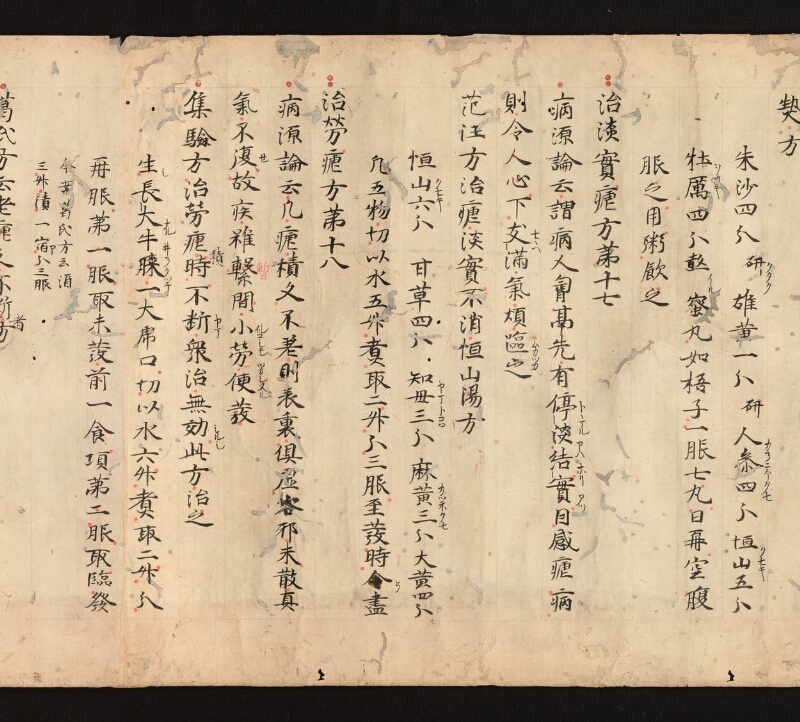 方
朱沙四分研 雄黄一分研 人参四分 恒山五分
牡厲四分熬 蜜丸如梧子一服七丸日再空腹
服之用粥飲之
治淡實瘧方第十七
病源論云謂病人胷髙先有停淡結實因感瘧病
則令人心下支滿氣煩嘔也
范汪方治瘧淡實不消恒山湯方
恒山六分 甘草四分 知毋三分 麻黄三分 大黄四分
凡五物切以水五升煑取二升分三服至發時令盡
治勞瘧方第十八
病源論云凡瘧積久不差則表裏俱虛客邪未散真
氣不復故疾雖 間小勞便發
集驗方治勞瘧時不断衆治無効此方治之
生長大牛膝一大席口切以水六升煑取二升分
再服第一服取未發前一食項第二服取臨發
葛氏方云老瘧久不断者方
今案葛氏方云酒
三升漬一宿分三服